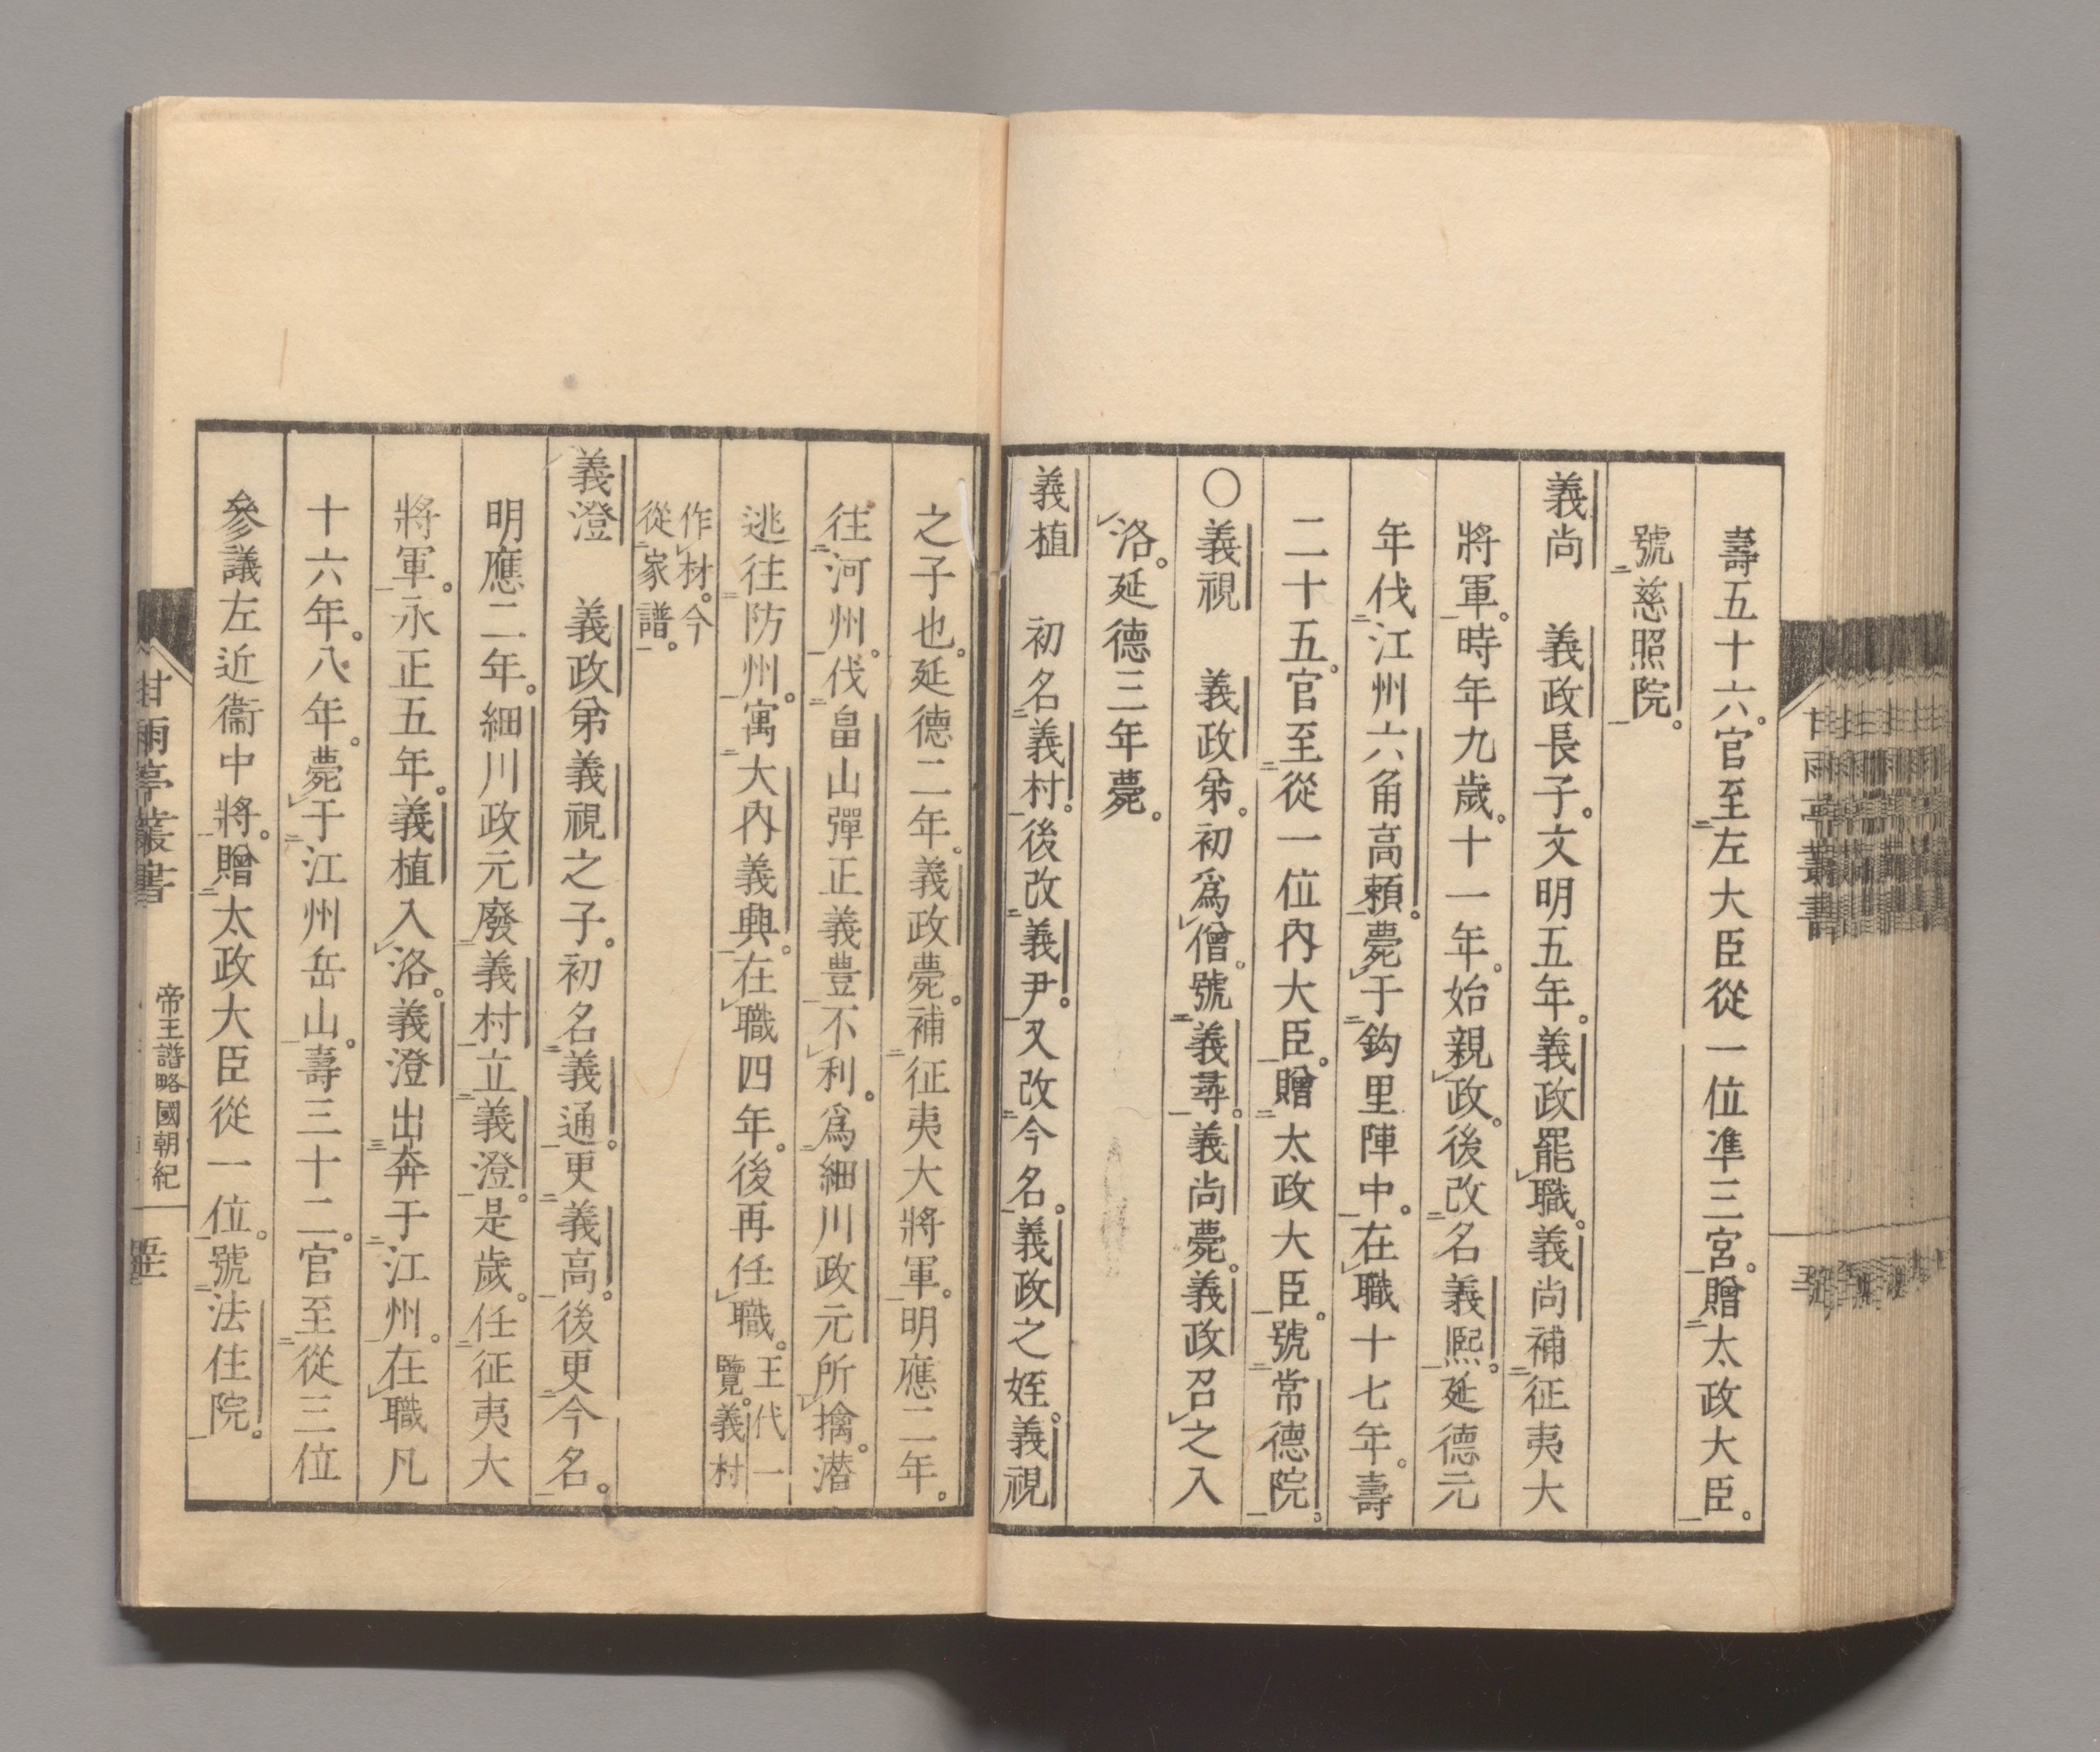 壽五十六。官至左大臣從一位准三宮。贈太政大臣。
號慈照院。
義尚　義政長子。文明五年。義政罷職。義尚補征夷大
將軍。時年九歲。十一年。始親政。後改名義熙。延德元
年伐江州六角高賴。薨于鈎里陣中。在職十七年。壽
二十五。官至從一位內大臣。贈太政大臣。號常德院。
○義視　義政弟。初爲僧。號義尋。義尚薨。義政召之入
洛。延德三年薨。
義植　初名義村。後改義尹。又改今名。義政之姪。義視
之子也。延德二年。義政薨。補征夷大將軍。明應二年。
往河州。伐畠山彈正義豊不利。爲細川政元所擒。潛
逃往防州。寓大內義興。在職四年。後再任職。王代一
覽。義村
作材。今
從家譜。
義澄　義政弟義視之子。初名義通。更義高。後更今名。
明應二年。細川政元廢義村立義澄。是歲。任征夷大
將軍。永正五年。義植入洛。義澄出奔于江州。在職凡
十六年。八年。薨于江州岳山。壽三十二。官至從三位
參議左近衞中將。贈太政大臣從一位。號法住院。
甘雨亭叢書
帝王譜略國朝紀